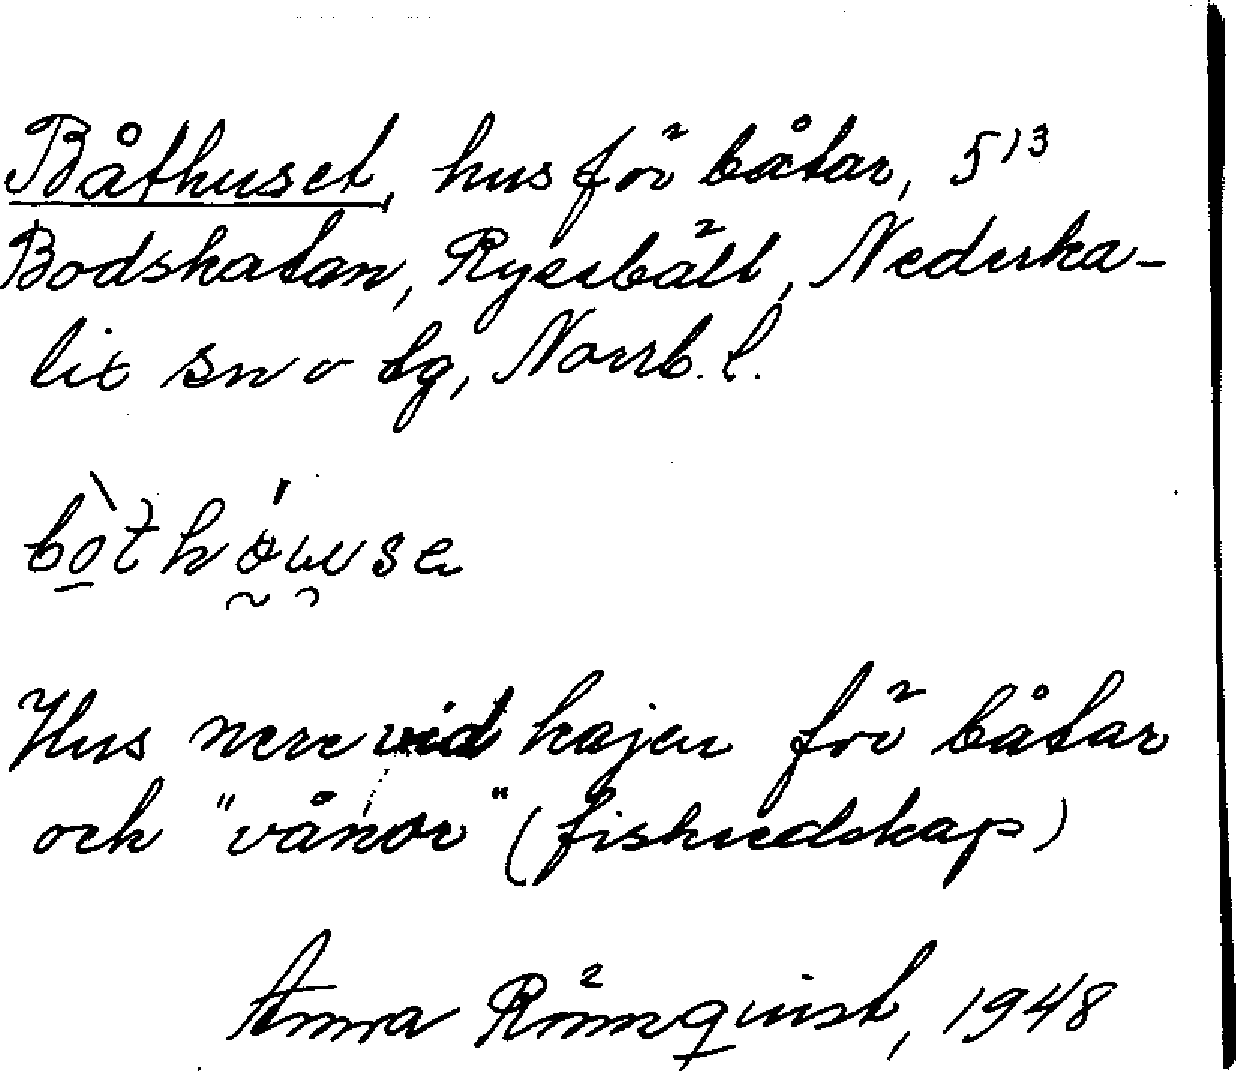 Båthuset, hus för båtar, 5)3
Bodskatan, Ryssbält, Nederka-
lix sn o tg, Norrb. l.
Hus nere vid kajen för båtar
och "vånor" (fiskredskap)
Anna Rönnquist, 1948